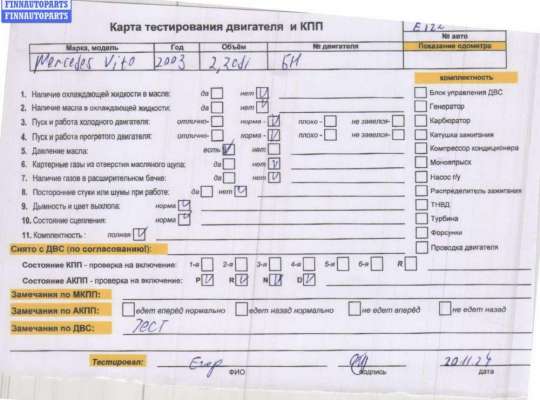 FINNAUTOPARTS
FINNAUTOPARTS
Карта тестирования двигателя и КПП
№ авто
Марка, модель Год Объём № двигателя Показание одометра
Mercedes Vito 2003 2,2cdi БН
комплектность
1. Наличие охлаждающей жидкости в масле: да нет V
2. Наличие масла в охлаждающей жидкости: да нет V
3. Пуск и работа холодного двигателя: отлично- норма - V плохо - не завелся-
4. Пуск и работа прогретого двигателя: отлично- норма - V плохо - не завелся-
5. Давление масла: есть V нет
6. Картерные газы из отверстия масляного щупа: да нет V
7. Наличие газов в расширительном бачке: да нет V
8. Посторонние стуки или шумы при работе: да нет V
9. Дымность и цвет выхлопа: норма V
10. Состояние сцепления: норма V
11. Комплектность : полная V
Блок управления ДВС
Генератор
Карбюратор
Катушка зажигания
Компрессор кондиционера
Моновпрыск
Насос г/у
Распределитель зажигания
ТНВД
Турбина
Форсунки
Проводка двигателя
Снято с ДВС (по согласованию!):
Состояние КПП - проверка на включение: 1-я 2-я 3-я 4-я 5-я 6-я R
Состояние АКПП - проверка на включение: P V R V N V D V
Замечания по МКПП:
Замечания по АКПП: едет вперёд нормально едет назад нормально не едет вперёд не едет назад
Замечания по ДВС: Тест
Тестировал: Егор 20.11.24
ФИО подпись дата